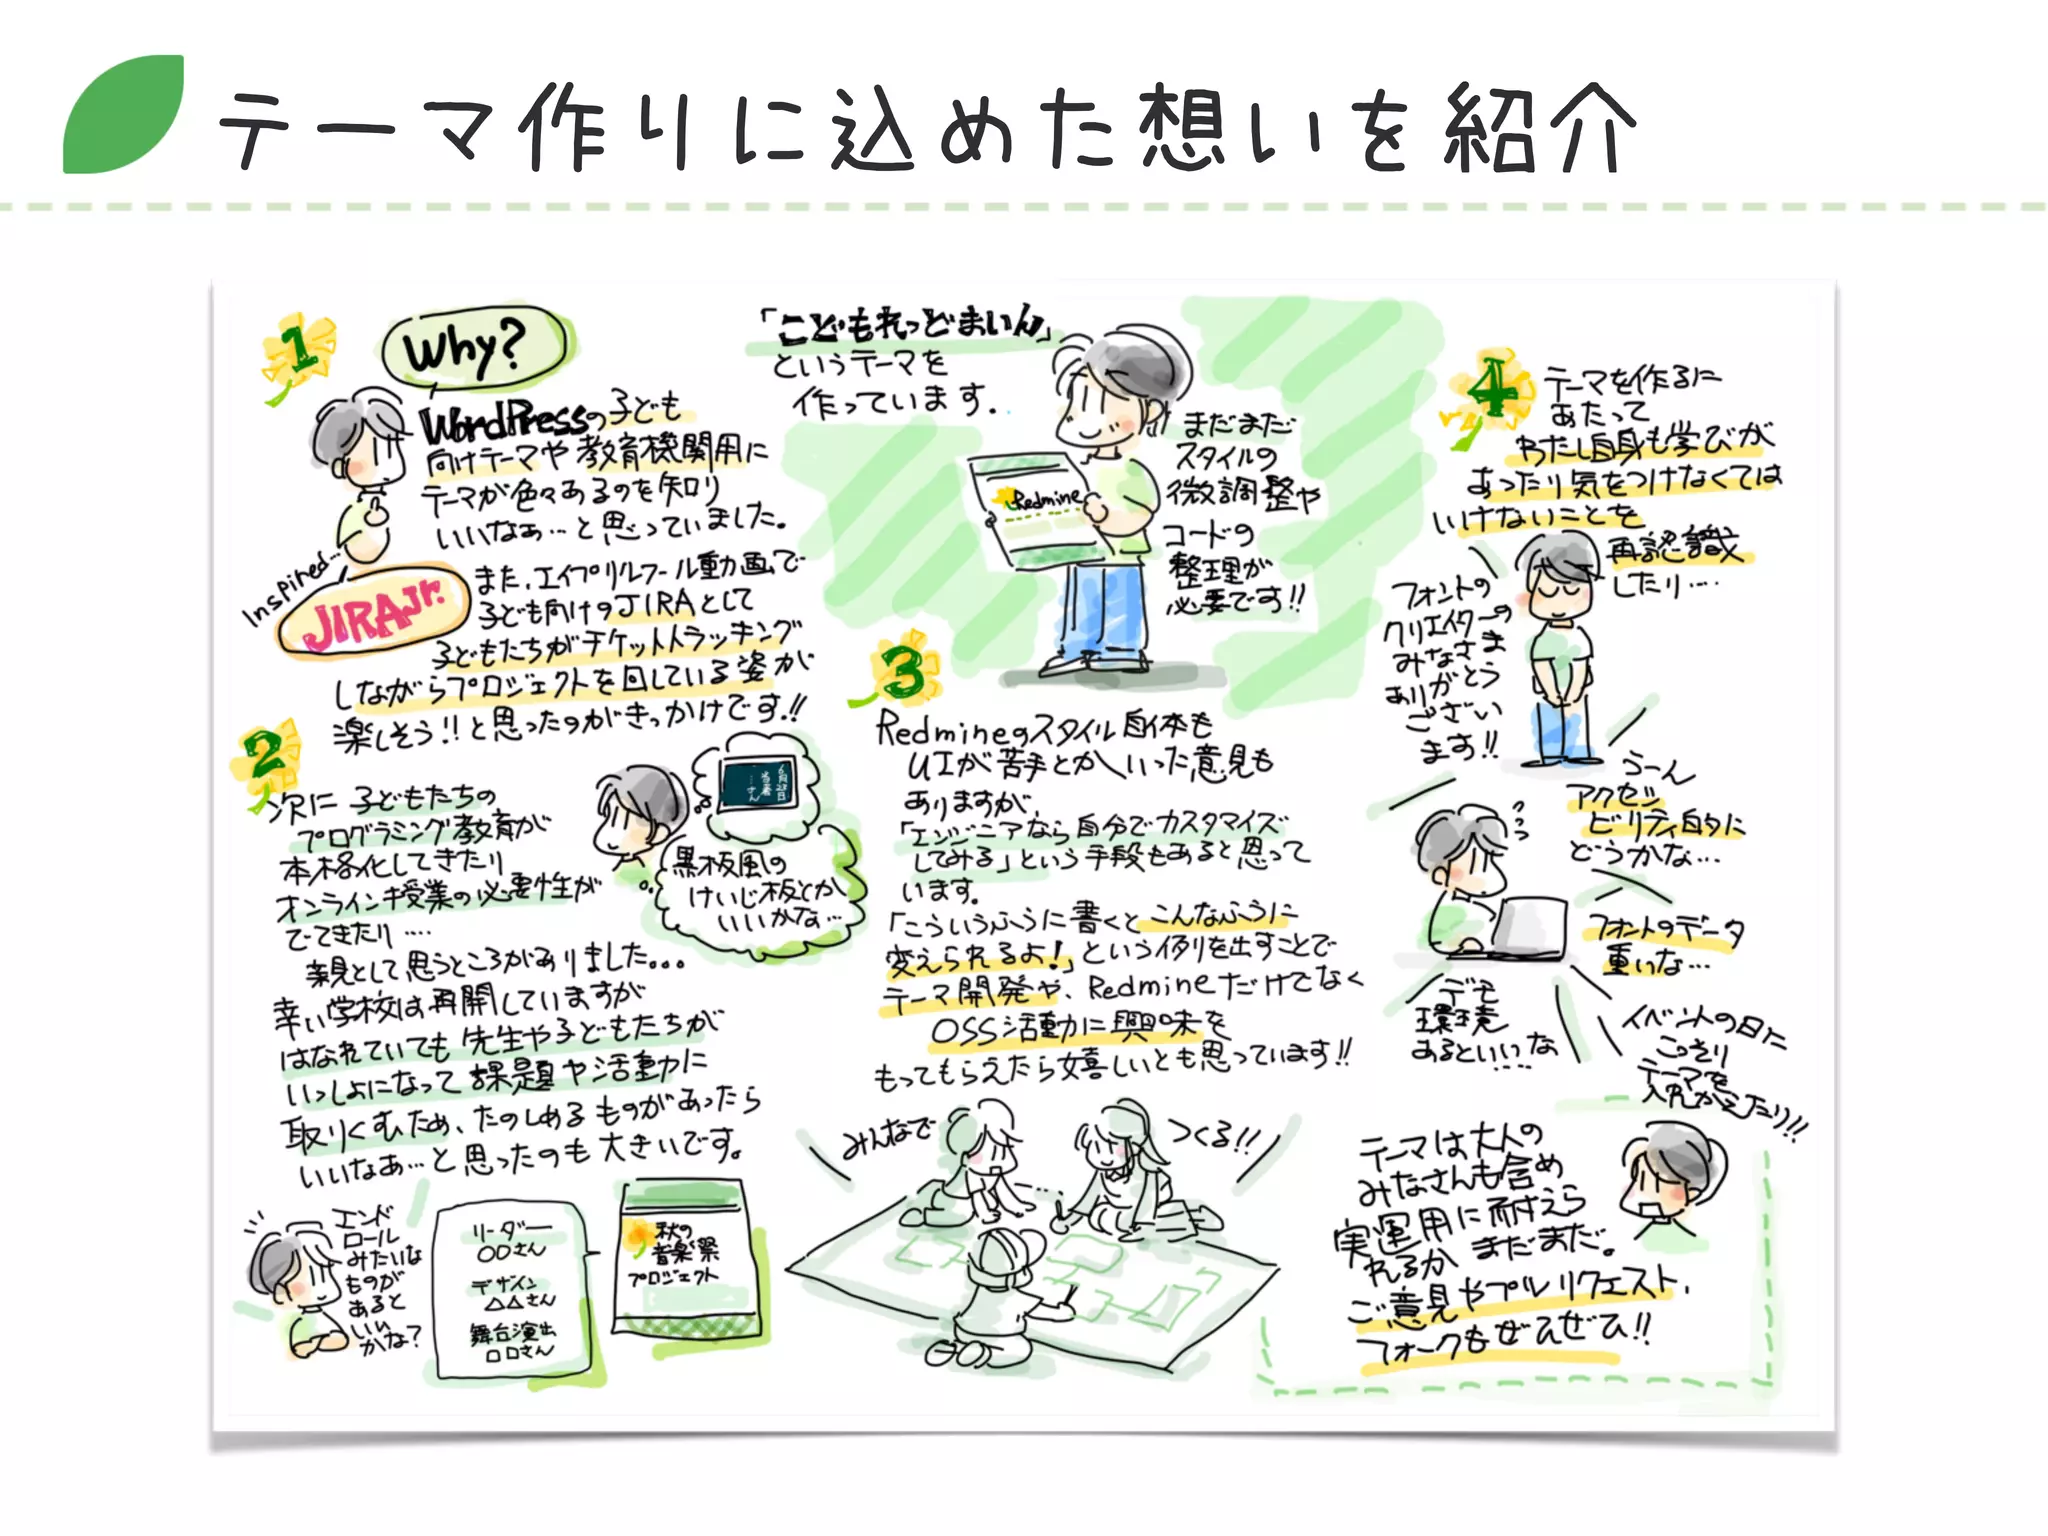 テーマ作りに込めた想いを紹介
「こどもれっどまいん」
というテーマを
作っています.
まだまだ
スタイルの
微調整や
コードの
整理が
必要です!!
Redmine
1
Why?
WordPressの子ども
向けテーマや教育機関用に
テーマが色々あるのを知り
いいなぁ…と思っていました。
Inspired…
JIRAJr.
また、エイプリルフール動画で
子ども向けのJIRAとして
子どもたちがチケットトラッキング
しながらプロジェクトを回している姿が
楽しそう!!と思ったのがきっかけです!!
2
次に子どもたちの
プログラミング教育が
本格化してきたり
オンライン授業の必要性が
でてきたり….
親として思うところがありました。。。
幸い学校は再開していますが
はなれていても先生や子どもたちが
いっしょになって課題や活動に
取りくむため、たのしめるものがあったら
いいなあ…と思ったのも大きいです。
6月23日
当番
…さん
黒板風の
けいじ板とか
いいかな…
エンド
ロール
みたいな
ものが
あると
いい
かな?
リーダー
〇〇さん
デザイン
△△さん
舞台演出
□□さん
秋の
音楽祭
プロジェクト
3
Redmineのスタイル自体も
UIが苦手とかいった意見も
ありますが、
「エンジニアなら自分でカスタマイズ
してみる」という手段もあると思って
います。
「こういうふうに書くとこんなふうに
変えられるよ!」という例を出すことで
テーマ開発や、Redmineだけでなく
OSS活動に興味を
もってもらえたら嬉しいとも思っています!!
みんなで
つくる!!
4
テーマを作るに
あたって
わたし自身も学びが
あったり気をつけなくては
いけないことを
再認識
したり….
フォントの
クリエイターの
みなさま
ありがとう
ござい
ます!!
うーん
アクセシ
ビリティ的に
どうかな…
フォントのデータ
重いな…
デモ
環境
あるといいな
…..
イベントの日に
こっそり
テーマを
入れかえたり!!
テーマは大人の
みなさんも含め
実運用に耐えら
れるかまだまだ。
ご意見やプルリクエスト、
フォークもぜひぜひ!!